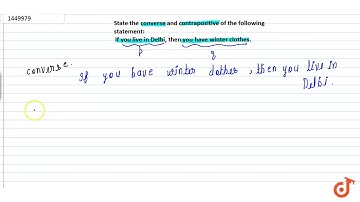 1449979
State the converse and contrapositive of the following
statement:
If you live in Delhi, then you have winter clothes.
p q
converse. If you have winter clothes, then you live in
Delhi.